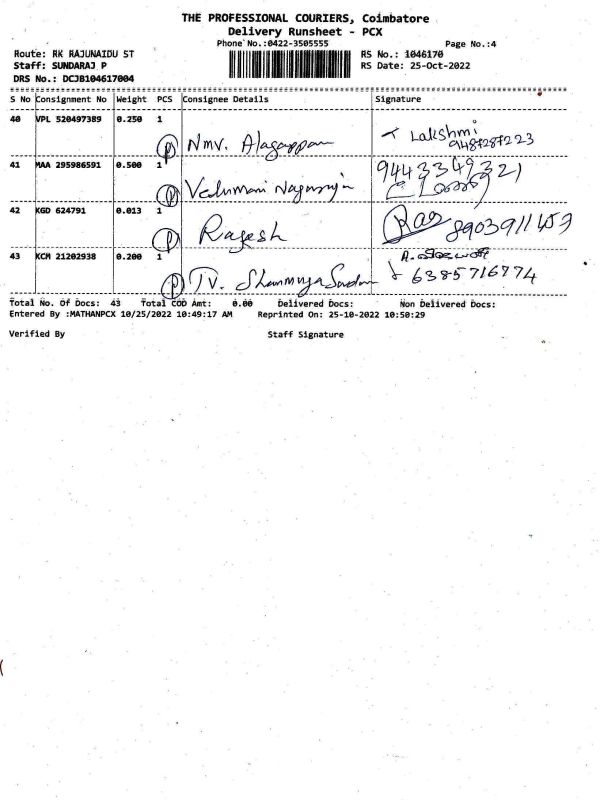 THE PROFESSIONAL COURIERS, Coimbatore
Delivery Runsheet - PCX
Phone No.:0422-3505555 Page No.:4
Route: RK RAJUNAIDU ST RS No.: 1046170
Staff: SUNDARAJ P RS Date: 25-Oct-2022
DRS No.: DCJB104617004
S No Consignment No Weight PCS Consignee Details Signature
40 VPL 520497389 0.250 1
(P) Nmv. Alagappan Lakshmi
9487287223
41 MAA 295986591 0.500 1 9443349321
(P) Vedumani Nagaraja
42 KGD 624791 0.013 1
(P) Rajesh Raj 8903911453
43 KCM 21202938 0.200 1
(P) TV. Shanmuga Sundaram 6385716774
Total No. Of Docs: 43 Total COD Amt: 0.00 Delivered Docs: Non Delivered Docs:
Entered By :MATHANPCX 10/25/2022 10:49:17 AM Reprinted On: 25-10-2022 10:50:29
Verified By Staff Signature